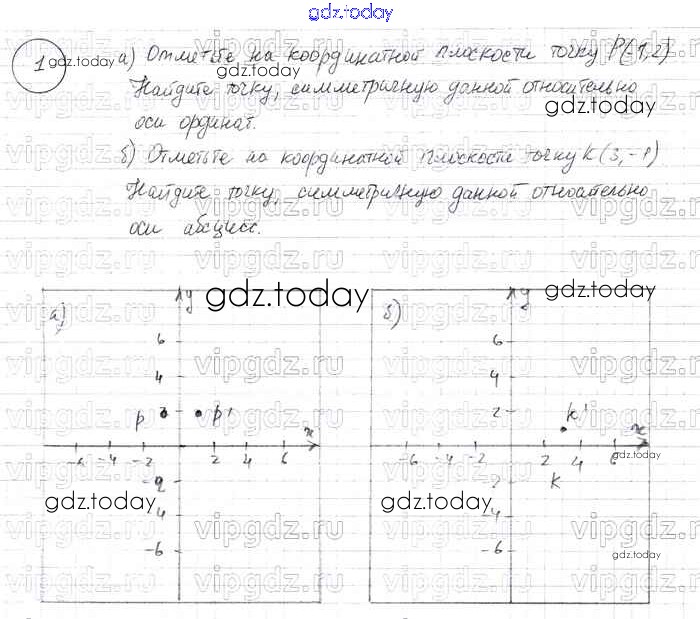 gdz.today
1 gdz.today а) Отметьте на координатной плоскости точку P(-1,2)
gdz.today
Найдите точку, симметричную данной относительно
gdz.today
оси ординат.
vipgdz.ru vipgdz.ru vipgdz.ru
б) Отметьте на координатной плоскости точку K(3,-1)
Найдите точку, симметричную данной относительно
оси абсцисс.
vipgdz.ru vipgdz.ru vipgdz.ru
а) y gdz.today
б) y gdz.today
6
4
P P'
x
-4 -2 2 4 6
-4
-6
gdz.today
6
4
2
K'
x
-6 -4 -2 2 4 6
gdz.today
K
-2
-4
-6
gdz.today
gdz.today
vipgdz.ru vipgdz.ru vipgdz.ru